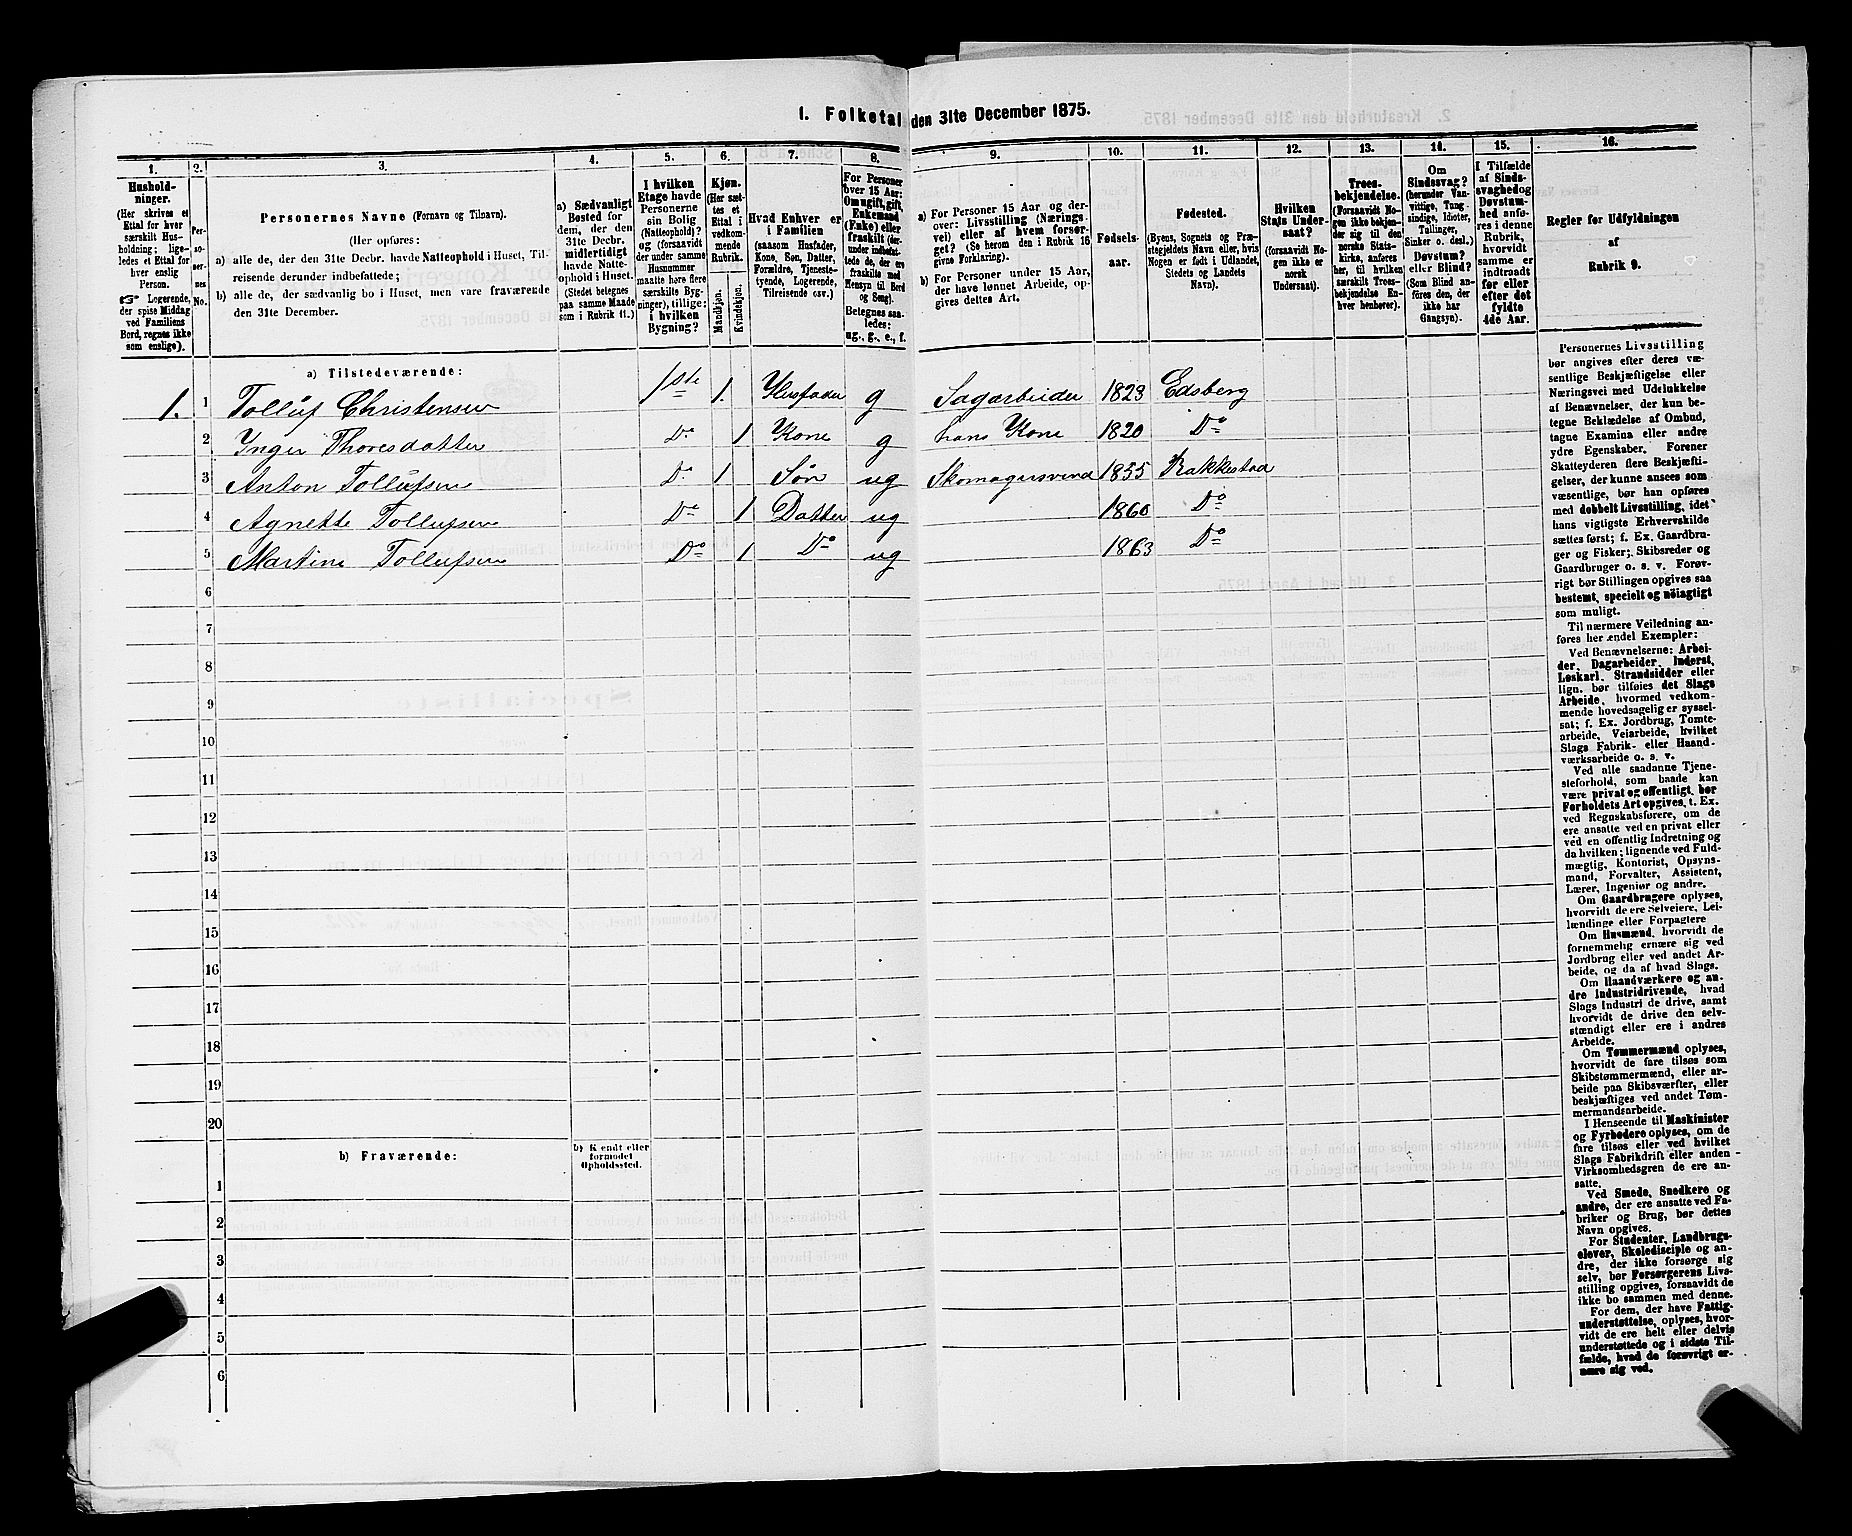 1. Folketal den 31te December 1875.
1.
Hushold-
ninger.
(Her skrives et
Ettal for hver
særskilt Hus-
holdning; lige-
ledes et Ettal for
hver enslig
Person.
☞ Logerende,
der spise Middag
ved Familiens
Bord, regnes ikke
som enslige).
2.
Per-
so-
ner-
nes
No.
3.
Personernes Navne (Fornavn og Tilnavn).
(Her opføres:
a) alle de, der den 31te Decbr. havde Natteophold i Huset, Til-
reisende derunder indbefattede;
b) alle de, der sædvanlig bo i Huset, men vare fraværende
den 31te December.
4.
a) Sædvanligt
Bosted for
dem, der den
31te Decbr.
midlertidigt
havde Natte-
ophold i Huset.
(Stedet betegnes
paa samme Maade
som i Rubrik 11.)
5.
I hvilken
Etage havde
Personerne
sin Bolig
(Natteophold)?
og (forsaavidt
der under samme
Husnummer
maatte høre flere
særskilte Byg-
ninger), tillige:
i hvilken
Bygning?
6.
Kjøn.
(Her sæt-
tes et
Ettal i
vedkom-
mende
Rubrik.
Mandkjøn.
Kvindekjøn.
7.
Hvad Enhver er
i Familien
(saasom Husfader,
Kone, Søn, Datter,
Forældre, Tjeneste-
tyende, Logerende,
Tilreisende osv.)
8.
For Personer
over 15 Aar:
Om ugift, gift,
Enkemand
(Enke) eller
fraskilt (der-
under indbefat-
tede de, der ere
fraskilte med
Hensyn til Bord
og Seng).
Betegnes saa-
ledes:
ug., g., e., f.
9.
a) For Personer 15 Aar og der-
over: Livsstilling (Nærings-
vei) eller af hvem forsør-
get? (Se herom den i Rubrik 16
givne Forklaring).
b) For Personer under 15 Aar,
der have lønnet Arbeide, op-
gives dettes Art.
10.
Fødsels-
aar.
11.
Fødested.
(Byens, Sognets og Præ-
stegjeldets Navn eller, hvis
Nogen er født i Udlandet,
Stedets og Landets
Navn).
12.
Hvilken
Stats Under-
saat?
(forsaavidt No-
gen ikke er
norsk
Undersaat).
13.
Troes-
bekjendelse.
(Forsaavidt No-
gen ikke bekjen-
der sig til den
norske Stats-
kirke, anføres
her, til hvilken
særskilt Troes-
bekjendelse En-
hver henhører).
14.
Om
Sindssvag?
(herunder Van-
vittige, Tung-
sindige, Idioter,
Tullinger,
Sinker o. desl.)
Døvstum?
eller Blind?
(Som Blind an-
føres den, der
ikke har
Gangsyn).
15.
I Tilfælde
af Sinds-
svaghed og
Døvstum-
hed anfø-
res i denne
Rubrik,
hvorvidt
samme er
indtraadt
før eller
efter det
fyldte
4de Aar.
16.
Regler for Udfyldningen
af
Rubrik 9.
a) Tilstedeværende:
1. 1 Tolluf Christensen 1ste 1. Husfader g Sagarbeider 1823 Edsberg
2 Inger Thoresdatter Do 1 Kone g hans Kone 1820 Do
3 Anton Tollufsen Do 1 Søn ug Skomagersvend 1855 Rakkestad
4 Agnette Tollufsen Do 1 Datter ug 1860 Do
5 Martine Tollufsen Do 1 Do ug 1863 Do
6
7
8
9
10
11
12
13
14
15
16
17
18
19
20
b) Fraværende:
b) Kjendt eller
formodet
Opholdssted.
1
2
3
4
5
6
Personernes Livsstilling
bør angives efter deres væ-
sentlige Beskjæftigelse eller
Næringsvei med Udelukkelse
af Benævnelser, der kun be-
tegne Beklædelse af Ombud,
tagne Examina eller andre
ydre Egenskaber. Forener
Skatteyderen flere Beskjæfti-
gelser, der kunne ansees som
væsentlige, bør han opføres
med dobbelt Livsstilling, idet
hans vigtigste Erhvervskilde
sættes først; f. Ex. Gaardbru-
ger og Fisker; Skibsreder og
Gaardbruger o. s. v. Forøv-
rigt bør Stillingen opgives saa
bestemt, specielt og nøiagtigt
som muligt.
Til nærmere Veiledning an-
føres her endel Exempler:
Ved Benævnelserne: Arbei-
der, Dagarbeider, Inderst,
Løskarl, Strandsidder eller
lign. bør tilføies det Slags
Arbeide, hvormed vedkom-
mende hovedsagelig er syssel-
sat; f. Ex. Jordbrug, Tomte-
arbeide, Veiarbeide, hvilket
Slags Fabrik- eller Haand-
værksarbeide o. s. v.
Ved alle saadanne Tjene-
steforhold, som baade kan
være privat og offentligt, bør
Forholdets Art opgives, t. Ex.
ved Regnskabsførere, om de
ere ansatte ved en privat eller
ved en offentlig Indretning og
da hvilken; lignende ved Fuld-
mægtig, Kontorist, Opsyns-
mand, Forvalter, Assistent,
Lærer, Ingeniør og andre.
Om Gaardbrugere oplyses,
hvorvidt de ere Selveiere, Lei-
lændinge eller Forpagtere
Om Husmænd, hvorvidt de
fornemmelig ernære sig ved
Jordbrug eller ved andet Ar-
beide, og da af hvad Slags.
Om Haandværkere og an-
dre Industridrivende, hvad
Slags Industri de drive, samt
hvorvidt de drive den selv-
stændigt eller ere i andres
Arbeide.
Om Tømmermænd oplyses,
hvorvidt de fare tilsøs som
Skibstømmermænd, eller ar-
beide paa Skibsværfter, eller
beskjæftiges ved andet Tøm-
mermandsarbeide.
I Henseende til Maskinister
og Fyrbødere oplyses, om de
fare tilsøs eller ved hvilket
Slags Fabrikdrift eller anden
Virksomhedsgren de ere an-
satte.
Ved Smede, Snedkere og
andre, der ere ansatte ved Fa-
briker og Brug, bør dettes
Navn opgives.
For Studenter, Landbrugs-
elever, Skoledisciple og an-
dre, der ikke forsørge sig
selv, bør Forsørgerens Livs-
stilling opgives, forsaavidt de
ikke bo sammen med denne.
For dem, der have Fattig-
understøttelse, oplyses, hvor-
vidt de ere helt eller delvis
understøttede og i sidste Til-
fælde, hvad de forøvrigt er-
nære sig ved.